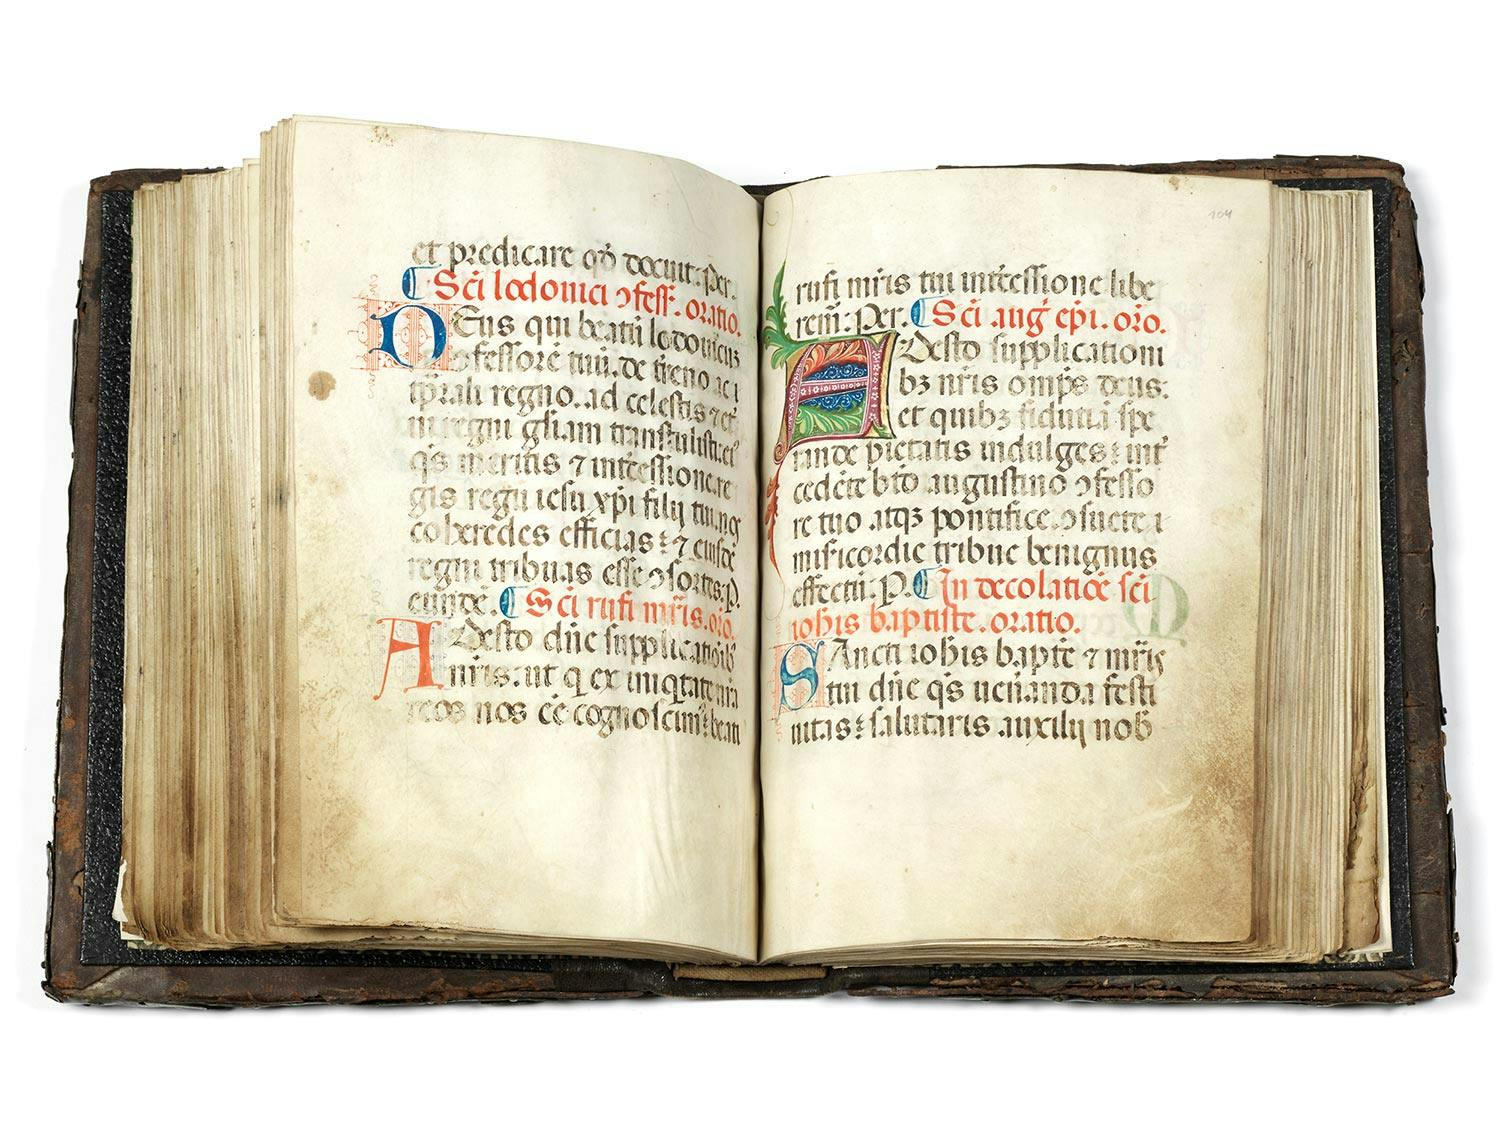 et predicare qđ docuit: Per.
Sc̄i lodouici ɔfess̄. oratio.
DEus qui beatū lodouicuȝ
ɔfessorē tuū. de t̄reno ac
tp̄rali regno. ad celestis ⁊ et̄
ni regni gl̄iam transtulisti:
q̄s meritis ⁊ int̄cessione. re
gis regū iesu xp̄i filij tui. nos
coheredes efficias: ⁊ eiusdē
regni tribuas esse ɔsortes. P.
eundē. Sc̄i rufi mr̄is. oro.
ADesto dn̄e supplicatōib̄
nr̄is: ut q ex iniqtate nr̄a
reos nos eē cognoscim⁹: beati
104
rufi mr̄is tui int̄cessione libe
rem̄: Per. Sc̄i auḡ epi. oro.
ADesto supplicationi
bȝ nr̄is omp̄s deus:
et quibȝ fiduciā spe
rande pietatis indulges: int̄
cedēte bt̄o augustino ɔfesso
re tuo atqȝ pontifice. ɔsuete
misericordie tribue benignus
effectū: P. In decolatiōe sc̄i
iohis baptiste. oratio.
SAncti iohis bapt̄e ⁊ mr̄is
tui dn̄e q̄s ueneranda festi
uitas: salutaris auxilij nob̄